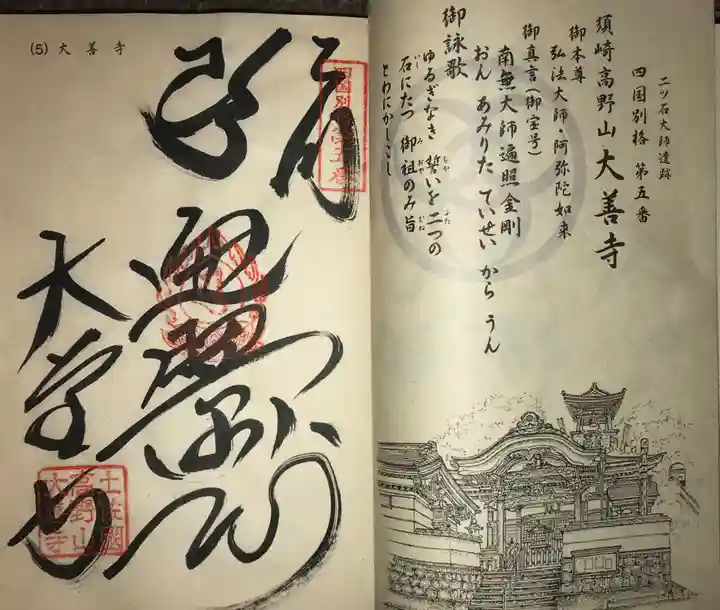 二ツ石大師遺跡
四国別格 第五番
須崎 高野山 大善寺
御本尊
弘法大師・阿弥陀如来
御真言(御宝号)
南無大師遍照金剛
おん あみりた ていせい から うん
御詠歌
ゆるぎなき 誓いを 二つの
石にたつ 御祖のみ旨
とわにかしこし
四国別格第五番
遍照金剛
大善寺
土佐國高野山大善寺
(5) 大善寺